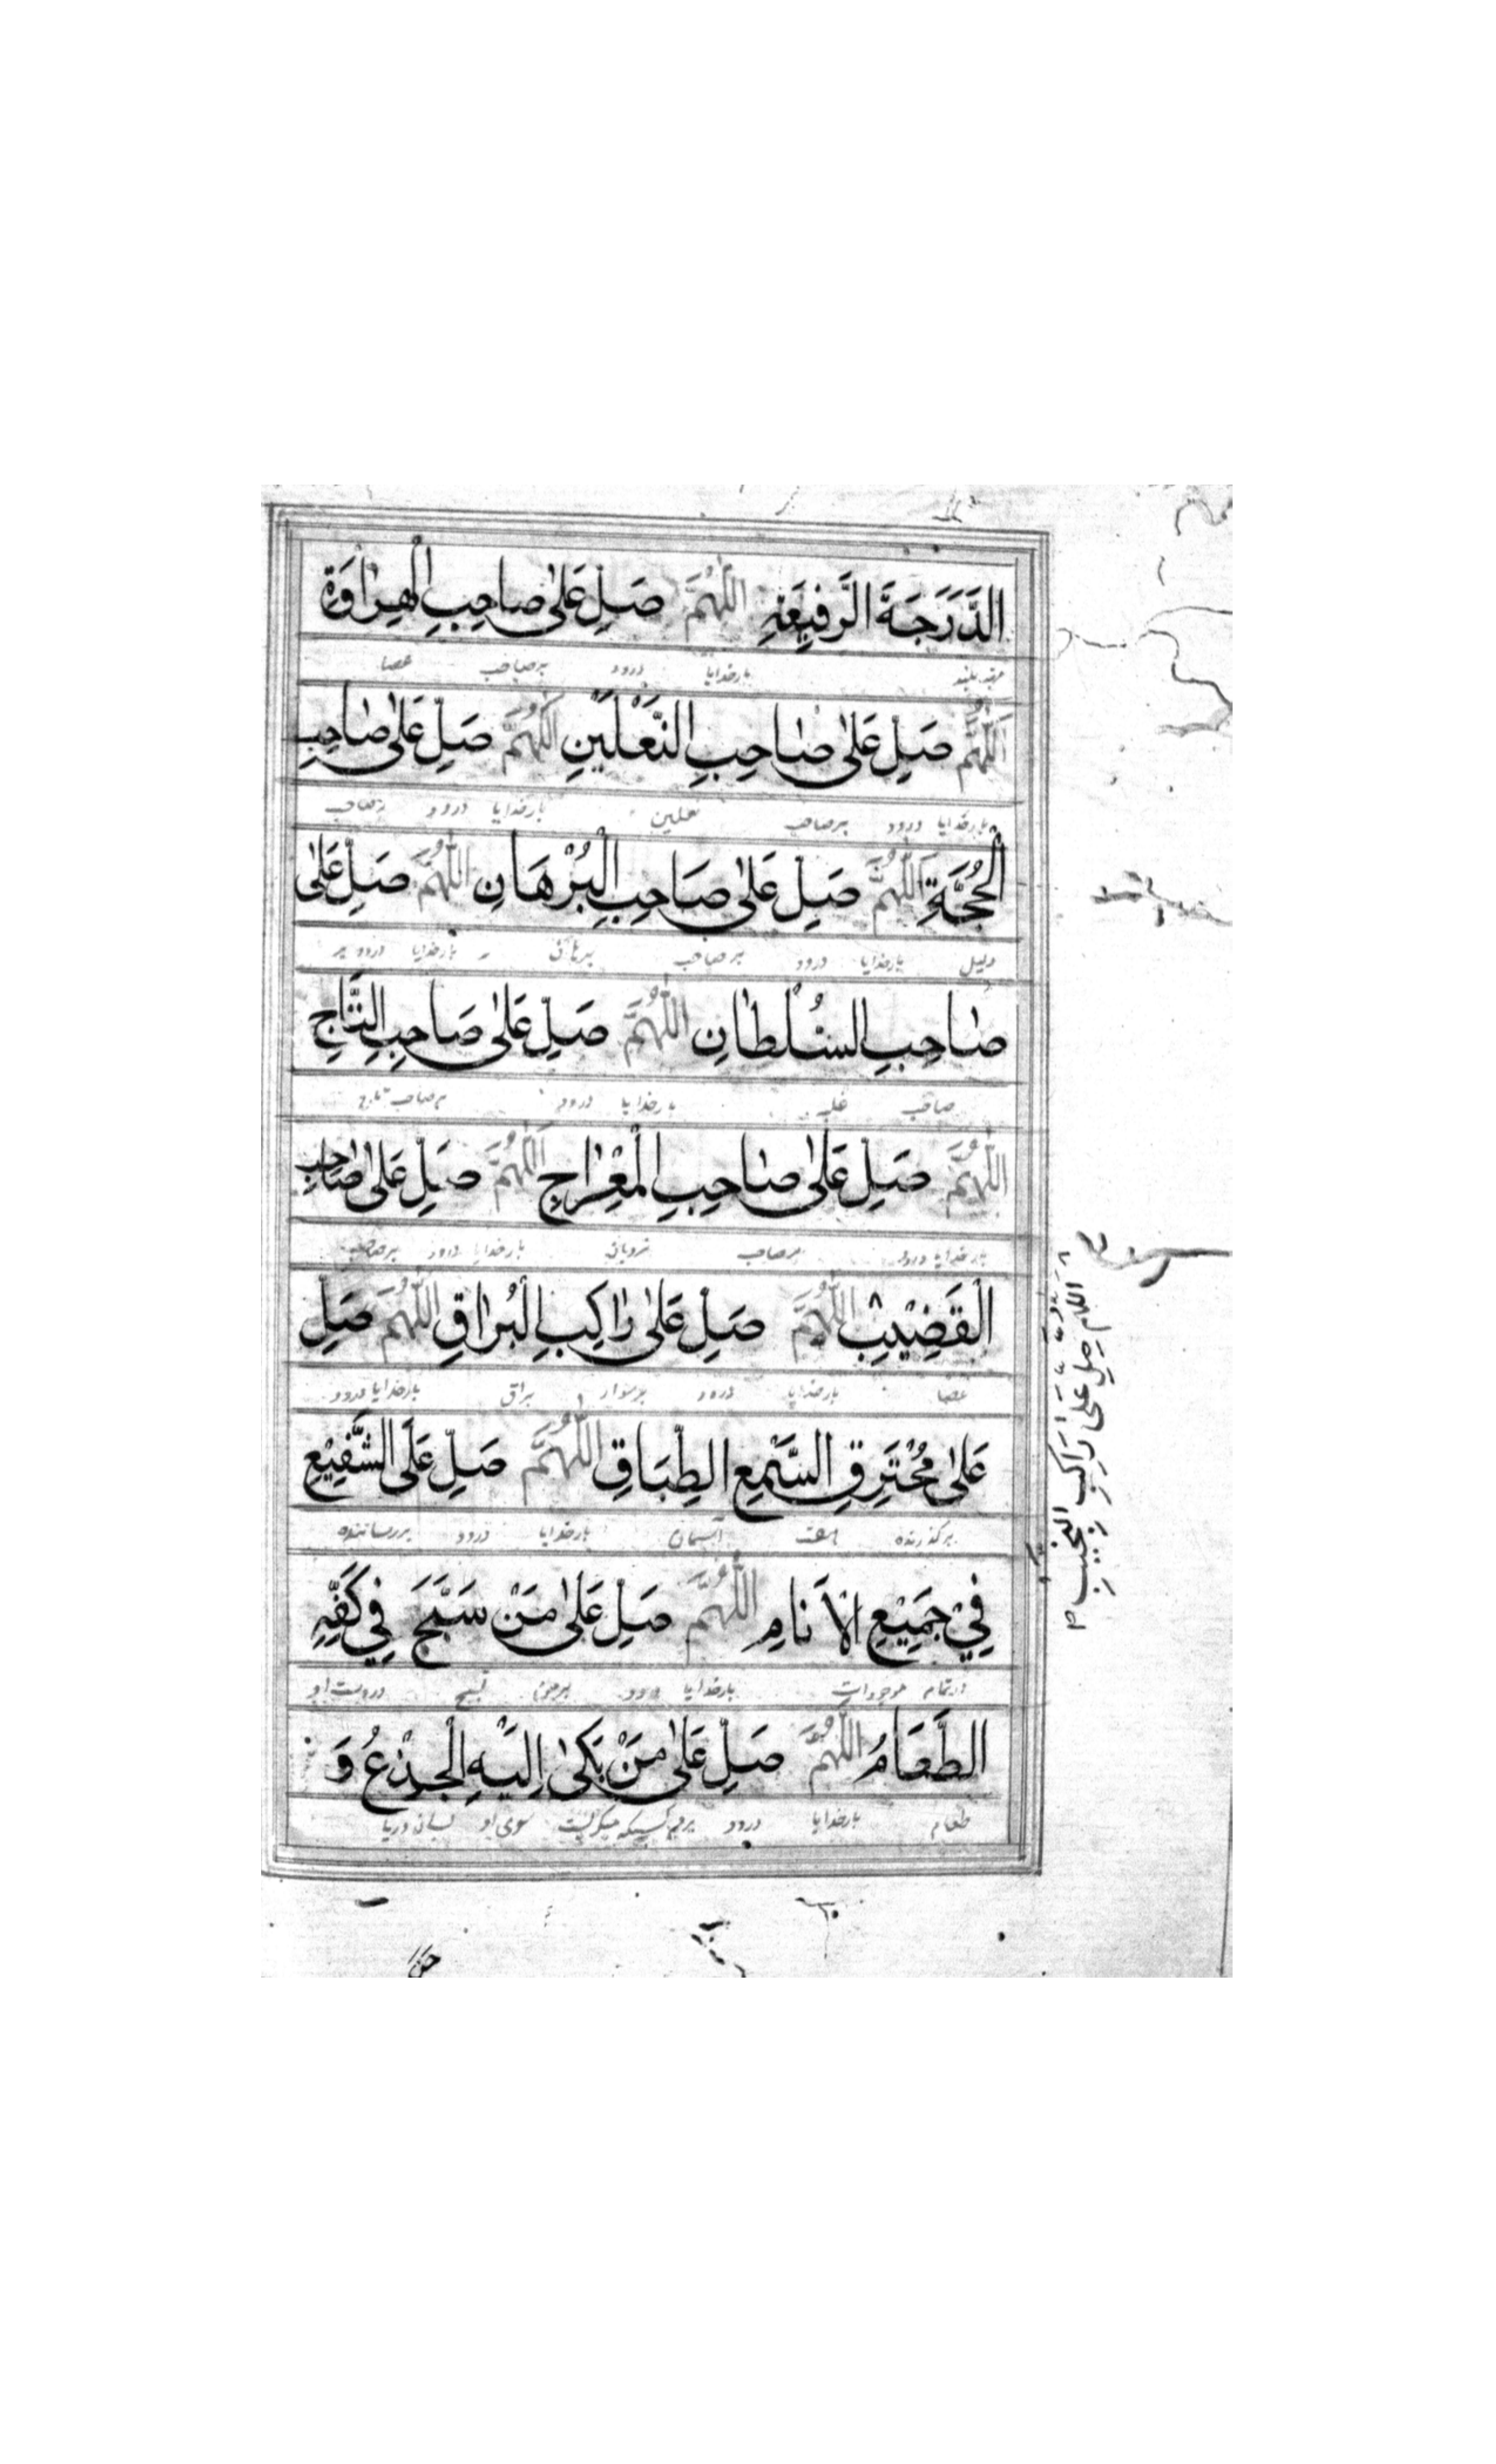 الدَّرَجَةَ الرَّفِيعَةِ اللّٰهُمَّ صَلِّ عَلىٰ صاحِبِ الْهِرٰاوَةِ
مرتبه بلند بارخدایا درود بر صاحب عصا
اَللّٰهُمَّ صَلِّ عَلىٰ صٰاحِبِ النَّعْلَيْنِ اَللّٰهُمَّ صَلِّ عَلىٰ صٰاحِبِ
بارخدایا درود بر صاحب نعلین بارخدایا درود بر صاحب
الْحُجَّةِ اَللّٰهُمَّ صَلِّ عَلىٰ صَاحِبِ الْبُرْهَانِ اللّٰهُمَّ صَلِّ عَلىٰ
دلیل بارخدایا درود بر صاحب برهان بارخدایا درود بر
صٰاحِبِ السُلْطٰانِ اللّٰهُمَّ صَلِّ عَلىٰ صَاحِبِ التَّاجِ
صاحب غلبه بارخدایا درود بر صاحب تاج
اللّٰهُمَّ صَلِّ عَلىٰ صٰاحِبِ الْمِعْرٰاجِ اَللّٰهُمَّ صَلِّ عَلىٰ صٰاحِبِ
بارخدایا درود بر صاحب نردبان بارخدایا درود بر صاحب
الْقَضِيْبِ اللّٰهُمَّ صَلِّ عَلىٰ رٰاكِبِ الْبُرٰاقِ اللّٰهُمَّ صَلِّ
عصا بارخدایا درود بر سوار براق بارخدایا درود
عَلىٰ مُخْتَرِقِ السَّبْعِ الطِّبَاقِ اللّٰهُمَّ صَلِّ عَلَى الشَّفِيْعِ
بر گذرنده هفت آسمان بارخدایا درود بر رساننده
فِيْ جَمِيْعِ الْاَنَامِ اللّٰهُمَّ صَلِّ عَلىٰ مَنْ سَبَّحَ فِي كَفِّهِ
در تمام موجودات بارخدایا درود تسبیح در دست او
الطَّعَامُ اللّٰهُمَّ صَلِّ عَلىٰ مَنْ بَكىٰ اِلَيْهِ الْجِذْعُ وَ
طعام بارخدایا درود میگریست سوی او
اَللّٰهُمَّ صَلِّ عَلىٰ رَاكِبِ النَّجِيبِ